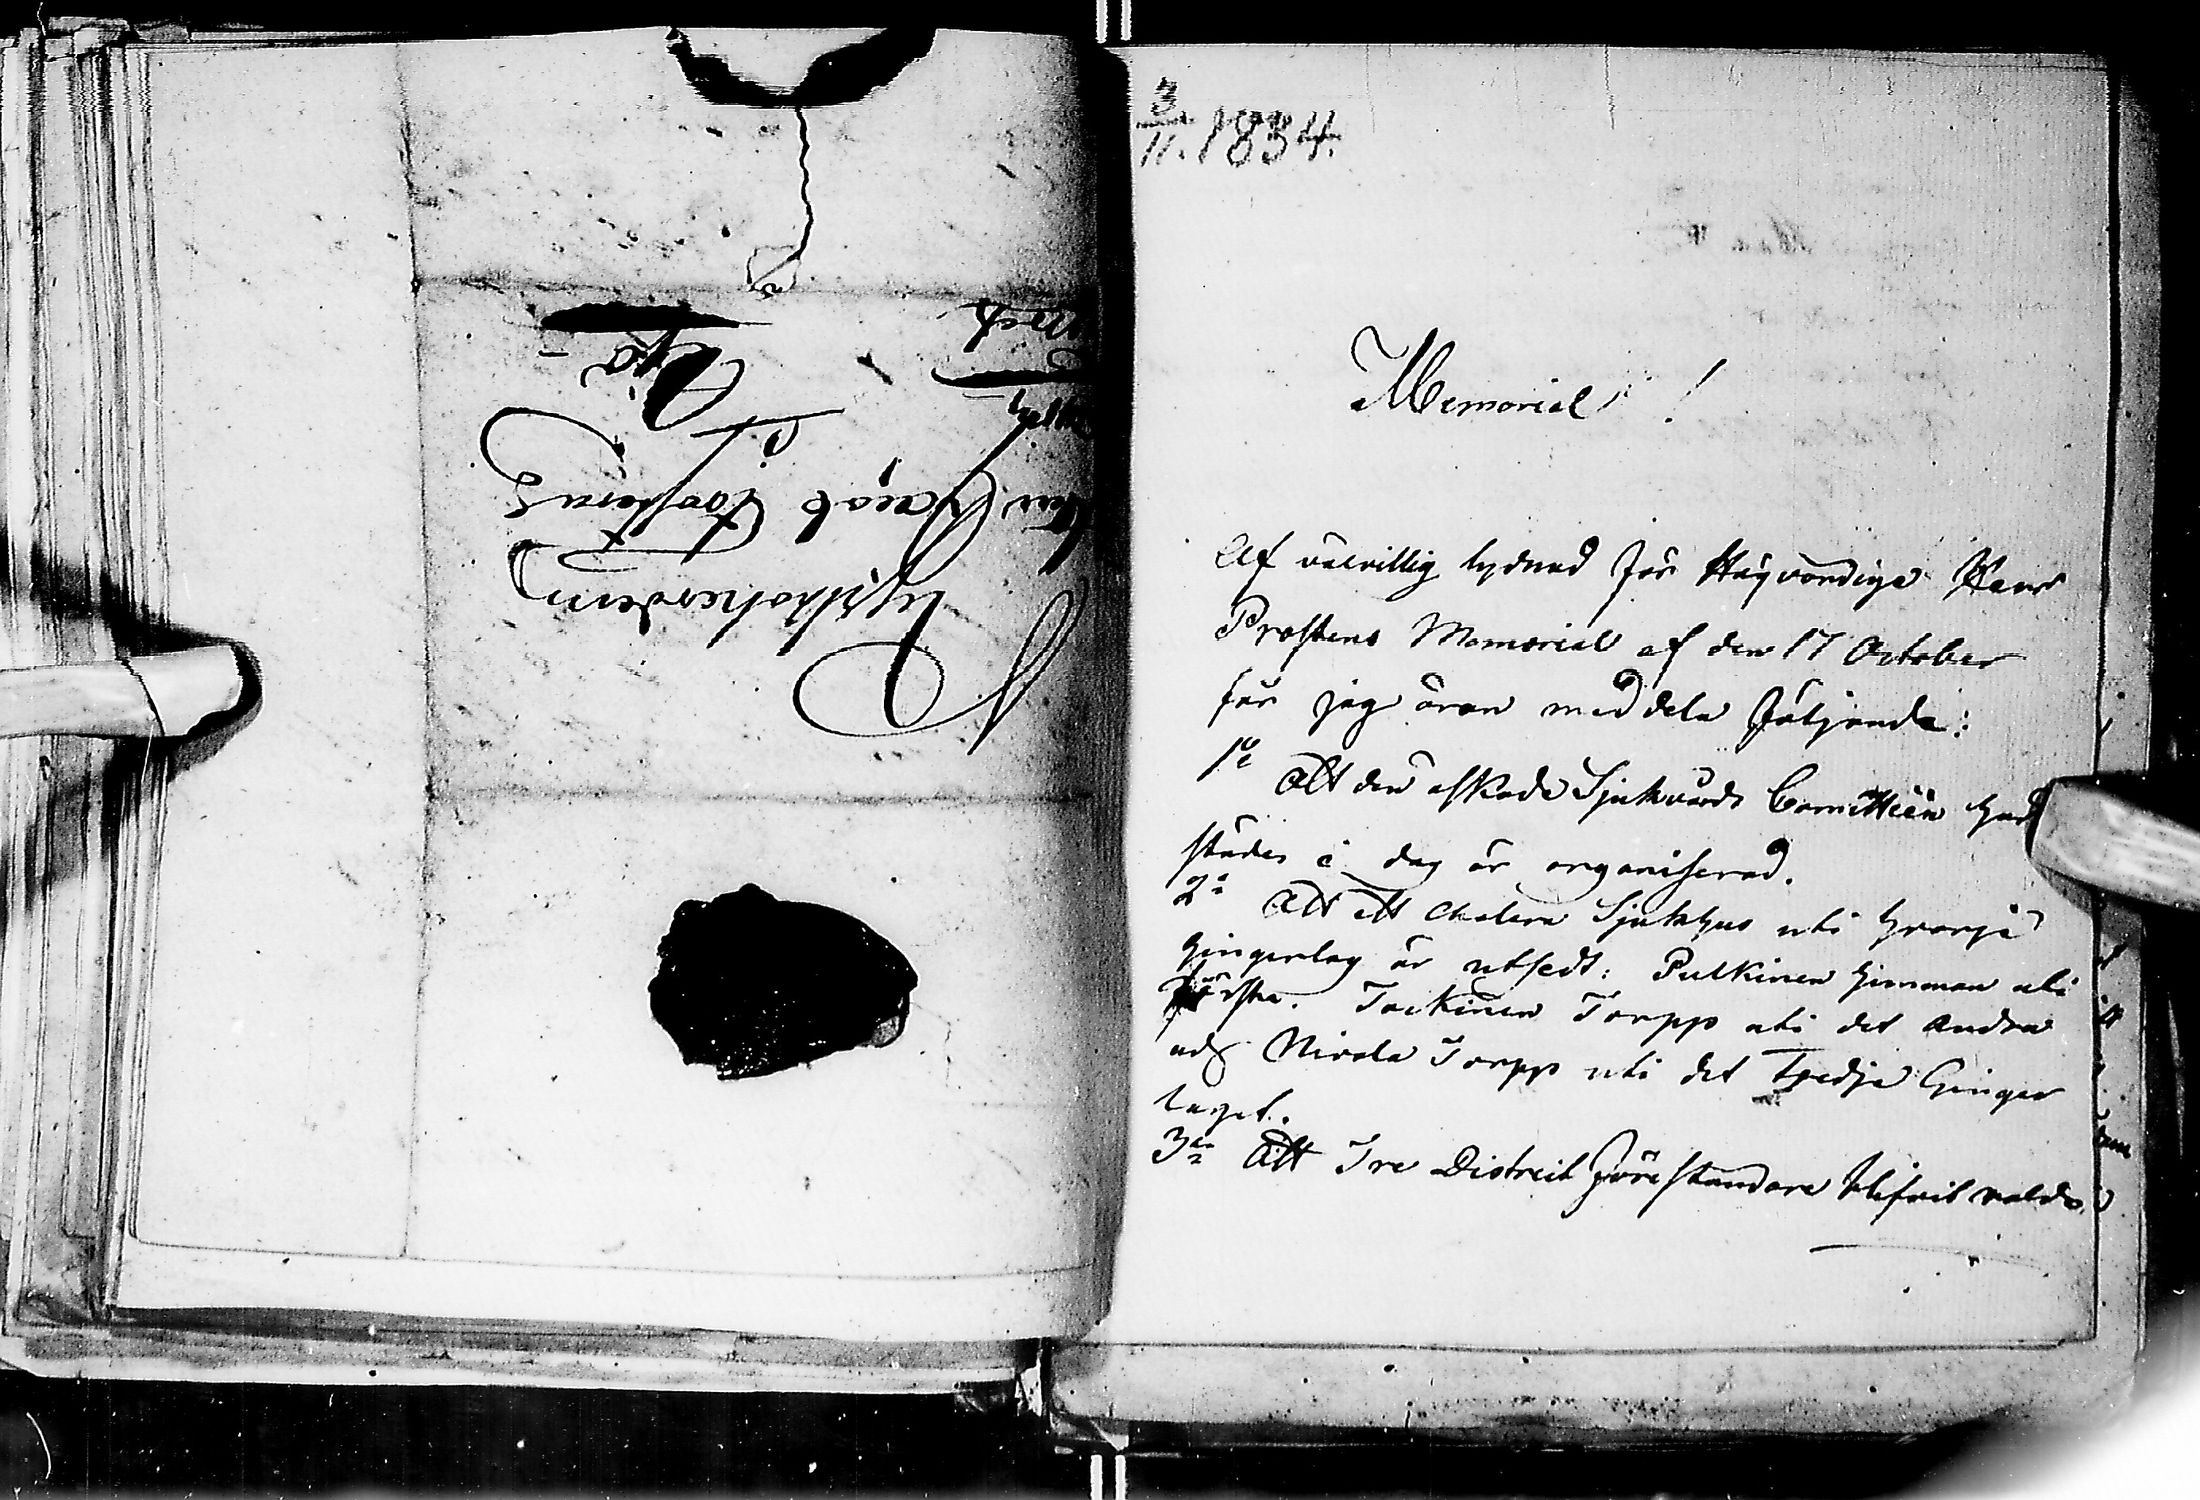 Kyrkoherden
Jacob
i
3/11. 1834.
Memorial!
Af välvillig lydnad för Högvördige Herr
Prostens Memorial af den 17 October
får jag äran meddela följande:
1o Att den äskade Sjukvårds Comitteen här
städes i dag är organiserad.
2o Att ett Cholera Sjukhus uti hvarje
Gingerlag är utsedt: Pulkinen hemman uti
första. Torpp uti det andra
och Nivala Torpp uti det Tredje Ginger
laget.
3o Att Tre District Föreståndare blifvit valde